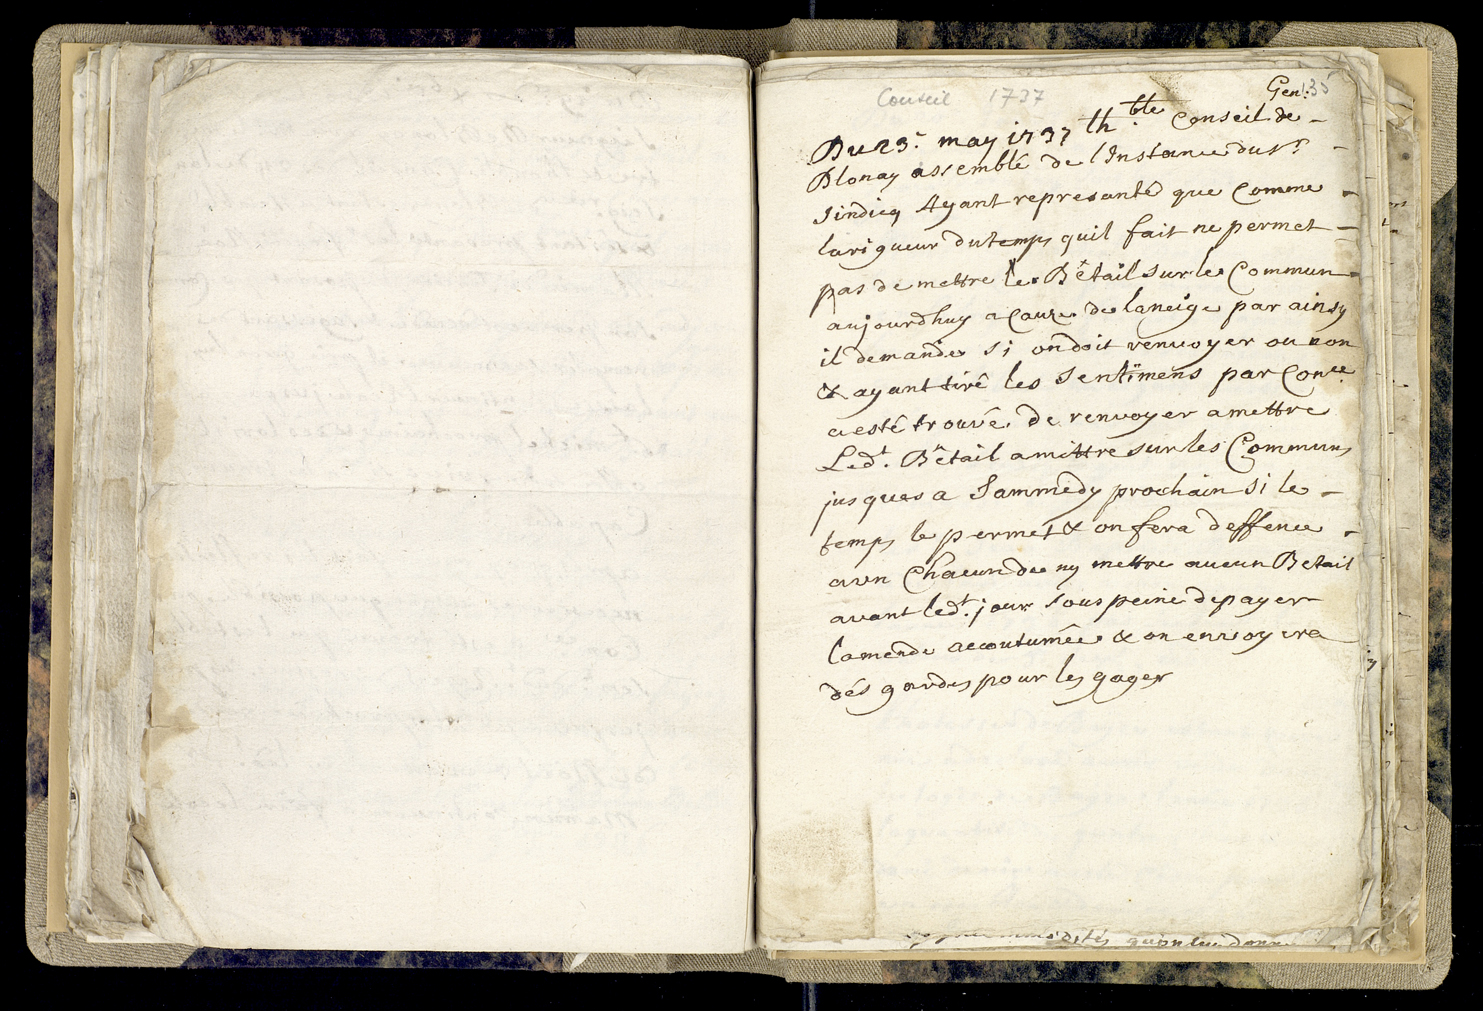 Conseil 1737
Gen. 135
Du 23. may 1737 th ble Conseil de
Blonay assemblé de l'Instance du Sr
Sindicq Ayant represanté que Comme
la rigueur du temps quil fait ne permet
pas de mettre le Bétail sur les Commun
aujourdhuy a cauze de la neige par ainsy
il demande si on doit renvoyer ou non
& ayant tiré les Sentimens par Conee
a esté trouvé de renvoyer a mettre
Ledt. Bétail a mittre sur les Communs
jusques a Sammedy prochain si le
temps le permet & on fera deffence
a un Chacun de ny mettre aucun Betail
avant ledt. jour sous peine de payer
lamende accoutumée & on envoyera
dés gardes pour les gager